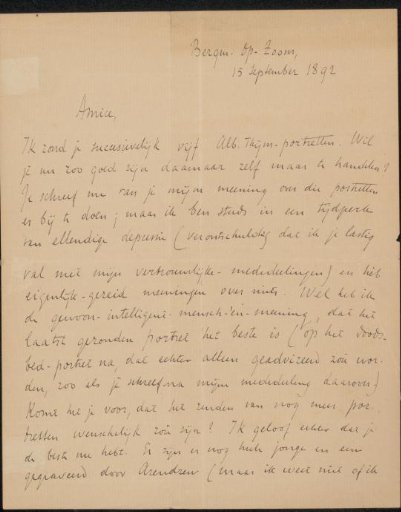 Bergen-Op-Zoom,
15 September 1892
Amice,
Ik zond je successievelijk vijf Alb. Thijm-portretten. Wil
je nu zoo goed zijn daarnaar zelf maar te handelen?
Je schreef me van je mijn meening over die portretten
er bij te doen; maar ik ben steeds in een tijdperk
van ellendige depressie (verontschuldig dat ik je lastig
val met mijn vertrouwlijke mededeelingen) en heb
eigenlijk-gezeid meeningen over niets. Wel heb ik
de gewoon-intelligent-mensch-ien-meening, dat het
laatst gezonden portret het beste is (op het doods-
bed-portret na, dat echter alleen geadvizeerd zou wor-
den, zoo als je schreef na mijn mededeeling daarover)
Komt het je voor, dat het zenden van nog meer por-
tretten wenschelijk zou zijn? Ik geloof echter dat je
de beste nu hebt. Er zijn er nog heele jonge en een
gegraveerd door Arendzen (maar ik weet niet of ik